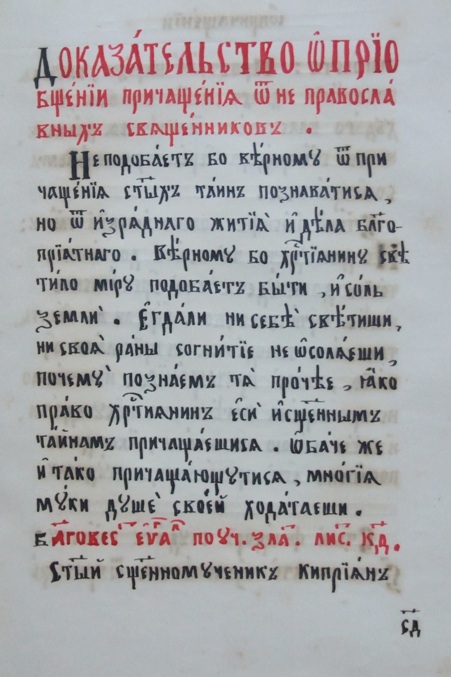 Доказа́тельство ѿ прїѻ
бще́нїи причаще́нїѧ ѿ не правосла́
вныхъ свѧще́нниковъ .
Не подоба́етъ бо вѣ́рному ѿ при
чаще́нїѧ ст҃ы́хъ та́инъ познава́тисѧ ,
но ѿ и҆зрѧ́днаго житїѧ̀ и҆ дѣ́ла бл҃го
прїѧ́тнаго . Вѣ́рному бо хрⷭ҇тїѧнину свѣ
ти́ло мі́ру подоба́етъ бы́ти , и҆ со́ль
землѝ . Е҆гда́ ли ни себѐ свѣ́тиши ,
ни своѧ̀ ра́ны согни́тїе не ѡ҆солѧ́еши ,
почемꙋ̀ позна́емъ тѧ̀ про́чее , ꙗ҆́кѡ
пра́во хрⷭ҇тїѧ́нинъ е҆сѝ и҆ сщ҃е́ннымъ
та́йнамъ причаща́ешисѧ . Ѻ҆ба́че же
и҆ та́ко причаща́ющутисѧ , мно́гїѧ
му́ки душѐ свое́й хода́таеши .
Бл҃гове́ст е҆ѵⷢ҇а поуч. зла. лис. к҃д.
Ст҃ы́й сщ҃енному́ченикъ кипрїѧ́нъ
с҃д